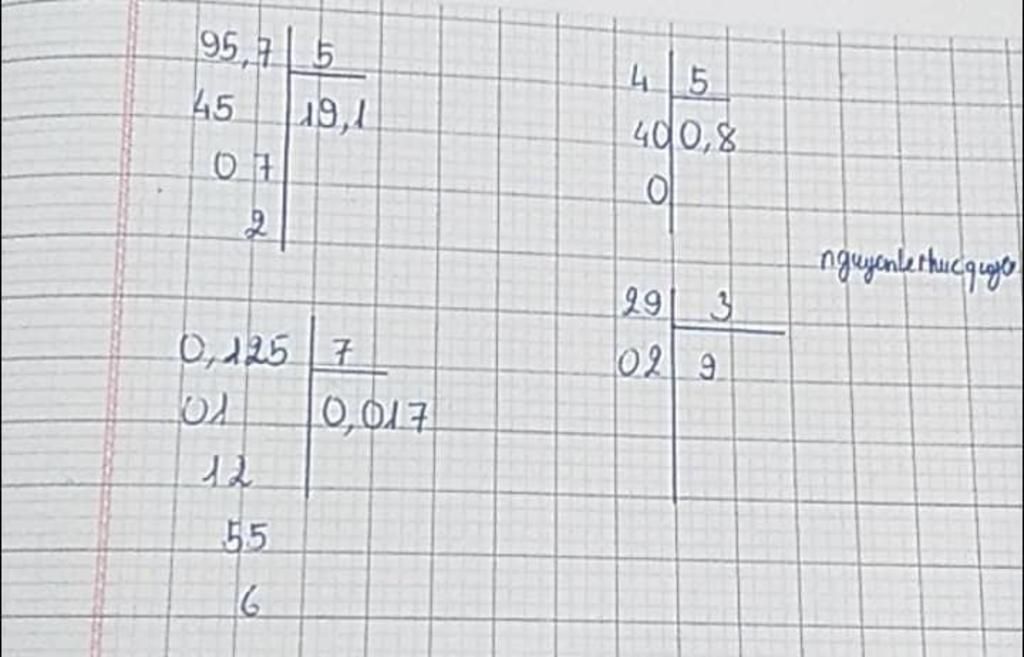 95,7 5
45 19,1
0 7
2
4 5
40 0,8
0
29 3
02 9
0,125 7
01 0,017
12
55
6